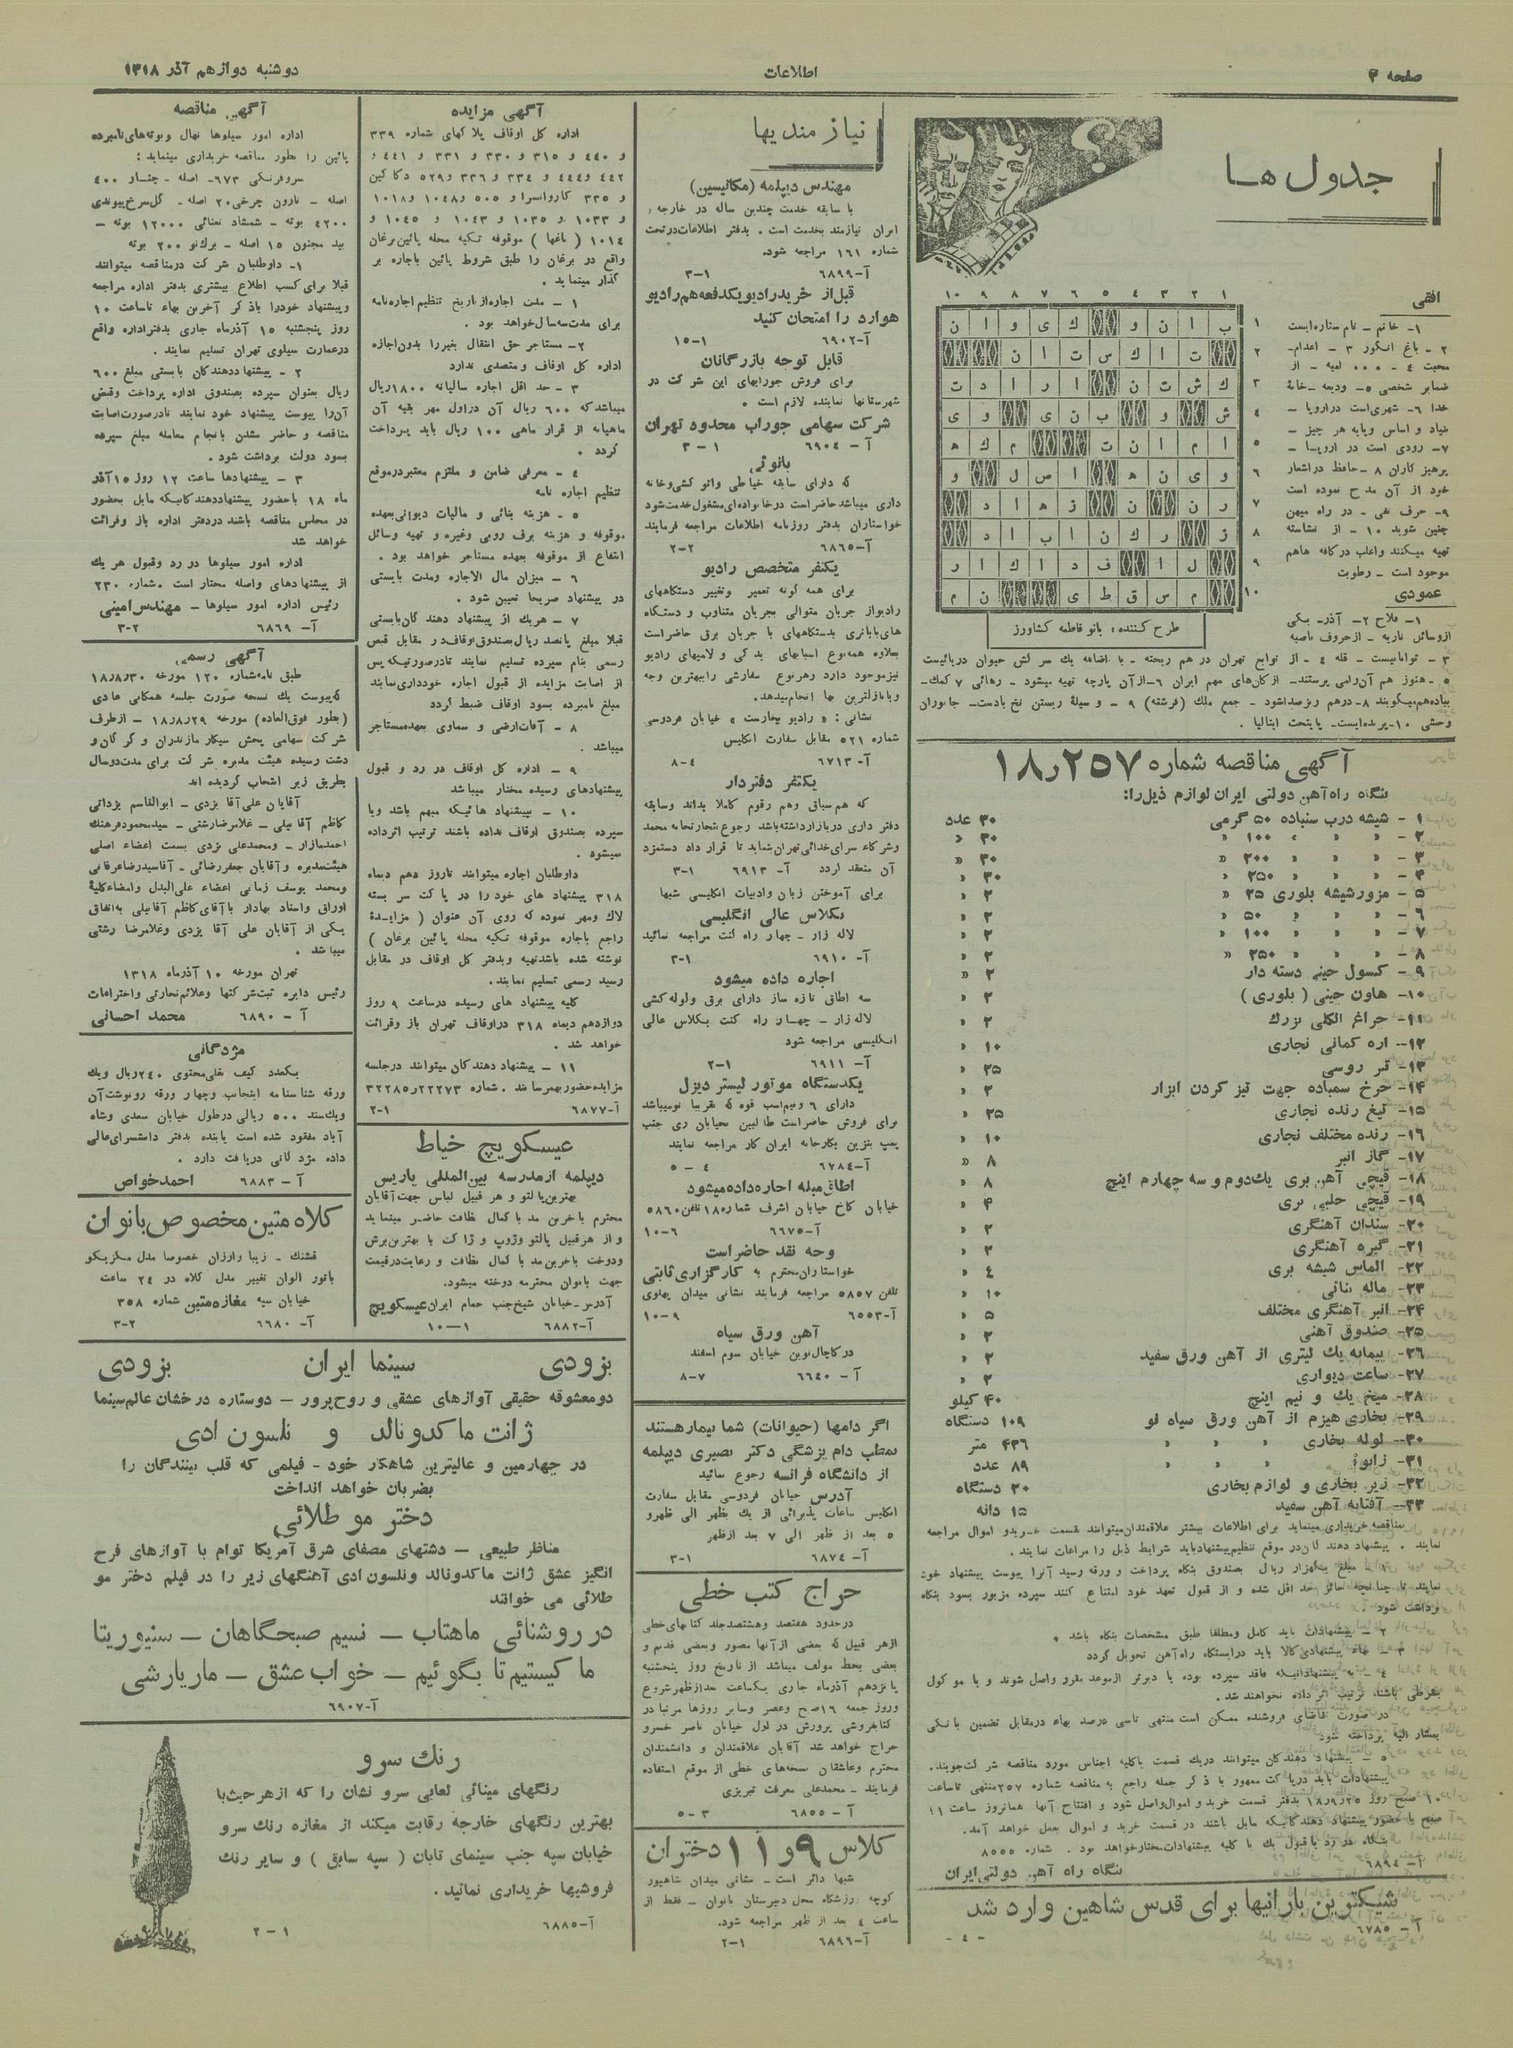 صفحه ۳
اطلاعات
دوشنبه دوازدهم آذر ۱۳۱۸
جدول ها
افقی
۱- خانم - نام ستاره‌ایست
۲ - باغ انگور ۳ - اعدام-
محبت ۴ - ۰۰۰ امیه - از
ضمایر شخصی ۵- ودیعه - خانهٔ
خدا ۶- شهری‌است در اروپا -
بنیاد و اساس و پایه هر چیز -
۷- رودی است در اروپا -
پرهیز کاران ۸ - حافظ در اشعار
خود از آن مدح نموده است
۹- حرف نفی - در راه میهن
چنین شوید ۱۰ - از نشاسته
تهیه میکنند و اغلب در کافه هاهم
موجود است - رطوبت
عمودی
۱- فلاح ۲- آذر- یکی
از وسائل نقلیه - از حروف ناصبه
۳ - توانائیست - قله ۴ - از توابع تهران در هم ریخته - با اضافه یك سر کش حیوان دریائیست
۵ - هنوز هم آن‌رامی پرستند- از کان‌های مهم ایران ۶-از آن پارچه تهیه میشود - رهائی ۷ کمك-
پیاده‌هم‌میگویند ۸-درهم ریزصداشود - جمع ملك (فرشته) ۹ - وسیلهٔ ریستن نخ بادست- جانوران
وحشی ۱۰-پرنده‌ایست- پایتخت ایتالیا .
۱ ۲ ۳ ۴ ۵ ۶ ۷ ۸ ۹ ۱۰
ب ا ن و ك ی و ا ن
ت ا ك س ت ا ن
ك ش ت ن ا ر ا د ت
ش و ب ن ی و ی
ا م ا ن ت م ك ه
و ی ن ه ا ص ل و
ر ن ن ز ه ا د
ز ر ك ن ا ب ا د
ل ا ف د ا ك ا ر
م س ق ط ی ن م
طرح کننده : بانو فاطمه کشاورز
آگهی مناقصه شماره ۲۵۷ر۱۸
بنگاه راه‌آهن دولتی ایران لوازم ذیل‌را:
۱ - شیشه درب سنباده ۵۰ گرمی ۳۰ عدد
۲ - « « « ۱۰۰ « ۳۰ «
۳ - « « « ۲۰۰ « ۳۰ «
۴ - « « « ۲۵۰ « ۳۰ «
۵ - مزور شیشه بلوری ۲۵ « ۲ «
۶ - « « « ۵۰ « ۲ «
۷ - « « « ۱۰۰ « ۲ «
۸ - « « « ۲۵۰ « ۲ «
۹ - کپسول چینی دسته دار ۲ «
۱۰- هاون چینی ( بلوری ) ۲ «
۱۱- چراغ الکلی بزرك ۲ «
۱۲- اره کمانی نجاری ۱۰ «
۱۳- تبر روسی ۲۵ «
۱۴- چرخ سمباده جهت تیز کردن ابزار ۲ «
۱۵- تیغ رنده نجاری ۲۵ «
۱۶- رنده مختلف نجاری ۱۰ «
۱۷- گاز انبر ۸ «
۱۸- قیچی آهن بری یك‌دوم و سه چهارم اینچ ۸ «
۱۹- قیچی حلبی بری ۴ «
۲۰- سندان آهنگری ۲ «
۲۱- گیره آهنگری ۲ «
۲۲- الماس شیشه بری ۴ «
۲۳- ماله بنائی ۱۰ «
۲۴- انبر آهنگری مختلف ۵ «
۲۵- صندوق آهنی ۲ «
۲۶- پیمانه یك لیتری از آهن ورق سفید ۲ «
۲۷- ساعت دیواری ۲ «
۲۸- میخ یك و نیم اینچ ۴۰ کیلو
۲۹- بخاری هیزم از آهن ورق سیاه لو ۱۰۹ دستگاه
۳۰- لوله بخاری « « « ۴۳۶ متر
۳۱- زانو « « « ۸۹ عدد
۳۲- زیر بخاری و لوازم بخاری ۲۰ دستگاه
۳۳- آفتابه آهن سفید ۱۵ دانه
بمناقصه خریداری مینماید برای اطلاعات بیشتر علاقمندان‌میتوانند بقسمت خرید و اموال مراجعه
نمایند . پیشنهاد دهندگان‌در موقع تنظیم‌پیشنهادباید شرایط ذیل را مراعات نمایند .
۱ - مبلغ یکهزار ریال بصندوق بنگاه پرداخت و ورقه رسید آنرا پیوست پیشنهاد خود
نمایند تا چنانچه حائز حد اقل شده و از قبول تعهد خود امتناع کنند سپرده مزبور بسود بنگاه
برداشت شود .
۲ - پیشنهادات باید کامل و مطلقا طبق مشخصات بنگاه باشد
۳ - بهاء پیشنهادی‌کالا باید در ایستگاه راه‌آهن تحویل گردد
۴ - به پیشنهاداتیکه فاقد سپرده بوده یا دیرتر از موعد مقرر واصل شوند و یا مو کول
بشرطی باشند، ترتیب اثر داده نخواهند شد .
در صورت تقاضای فروشنده ممکن است منتهی تاسی درصد بهاء در مقابل تضمین بانکی
بمشار الیه پرداخته شود
۵ - پیشنهاد دهندگان میتوانند در یك قسمت یا کلیه اجناس مورد مناقصه شر کت‌جویند.
پیشنهادات باید در پاکت ممهور با ذکر جمله راجع به مناقصه شماره ۲۵۷منتهی تاساعت
۱۰ صبح روز ۲۵ر۹ر۱۸ بدفتر قسمت خرید و اموال‌واصل شود و افتتاح آنها همانروز ساعت ۱۱
صبح با حضور پیشنهاد دهندگانیکه مایل باشند در قسمت خرید و اموال بعمل خواهد آمد.
بنگاه در رد یا قبول یك یا کلیه پیشنهادات‌مختارخواهد بود . شماره ۸۰۰۰
آ- ۶۸۹۴ بنگاه راه آهن دولتی‌ایران
شیکترین بارانیها برای قدس شاهین وارد شد
آ - ۶۷۸۵ - ۴ -
نیاز مندیها
مهندس دیپلمه (مکانیسین)
با سابقه خدمت چندین ساله در خارجه و
ایران نیازمند بخدمت است . بدفتر اطلاعات‌درتحت
شماره ۱۶۱ مراجعه شود.
آ- ۶۸۹۹ ۱-۳
قبل‌از خریدرادیویکدفعه‌هم‌رادیو
هوارد را امتحان کنید
آ- ۶۹۰۲ ۱-۱۵
قابل توجه بازرگانان
برای فروش جورابهای این شرکت در
شهرستانها نماینده لازم است .
شرکت سهامی جوراب محدود تهران
آ - ۶۹۰۴ ۱ - ۳
بانوئی
که دارای سابقه خیاطی واتو کشی‌وخانه
داری میباشدحاضراست درخانواده‌ای‌مشغول‌خدمت‌شود
خواستاران بدفتر روزنامه اطلاعات مراجعه فرمایند
آ- ۶۸۶۵ ۲-۲
یکنفر متخصص رادیو
برای همه گونه تعمیر وتغییر دستگاههای
رادیواز جریان متوالی بجریان متناوب و دستگاه
های‌باباتری بدستگاههای با جریان برق حاضراست
بعلاوه همه‌نوع اسبابهای یدکی و لامپهای رادیو
نیزموجود دارد وهرنوع سفارشی رابهترین وجه
وبانازلترین بها انجام‌میدهد.
نشانی : « رادیو بخارست » خیابان فردوسی
شماره ۵۲۱ مقابل سفارت انگلیس
آ- ۶۷۱۳ ۴-۸
یکنفر دفتردار
که هم‌سیاق وهم رقوم کاملا بداند وسابقه
دفتر داری دربازارداشته‌باشد رجوع‌بتجارتخانه محمد
وشرکاء سرای‌خدائی‌تهران‌نماید تا قرار داد دستمزد
آن منعقد گردد آ- ۶۹۱۳ ۱-۳
برای آموختن زبان وادبیات انگلیسی شبها
بکلاس عالی انگلیسی
لاله زار - چهار راه کنت مراجعه نمائید
آ- ۶۹۱۰ ۱-۳
اجاره داده میشود
سه اطاق تازه ساز دارای برق ولوله‌کشی
لاله‌زار - چهار راه کنت بکلاس عالی
انگلیسی مراجعه شود
آ- ۶۹۱۱ ۱-۲
یکدستگاه موتور لیستر دیزل
دارای ۶ ونیم‌اسب قوه که تقریبا نومیباشد
برای فروش حاضراست طالبین بخیابان ری جنب
پمپ بنزین بکارخانه ایران کار مراجعه نمایند
آ-۶۷۸۴ ۴ - ۵
اطاق مبله اجاره‌داده‌میشود
خیابان کاخ خیابان اشرف شماره۱۸۰تلفن۵۸۶۰
آ-۶۶۷۵ ۶-۱۰
وجه نقد حاضر است
خواستاران‌محترم به کارگزاری‌ثابتی
تلفن ۵۸۵۷ مراجعه فرمایند نشانی میدان پهلوی
آ-۶۵۵۳ ۹-۱۰
آهن ورق سیاه
در کاچال‌نوین خیابان سوم اسفند
آ - ۶۶۴۰ ۷-۸
اگر دامها (حیوانات) شما بیمارهستند
بمطب دام پزشگی دکتر نصیری دیپلمه
از دانشگاه فرانسه رجوع نمائید
آدرس خیابان فردوسی مقابل سفارت
انگلیس ساعات پذیرائی از یك بظهر الی ظهرو
۵ بعد از ظهر الی ۷ بعد ازظهر
آ- ۶۸۷۴ ۱-۳
حراج کتب خطی
درحدود هفتصد وهشتصدجلد کتابهای‌خطی
ازهر قبیل که بعضی از آنها مصور وبعضی قدیم و
بعضی بخط مولف میباشد از تاریخ روز پنجشنبه
پانزدهم آذرماه جاری یکساعت بعدازظهرشروع
وروز جمعه ۱۶صبح وعصر وسایر روزها مرتبا در
کتابفروشی پرورش در اول خیابان ناصر خسرو
حراج خواهد شد آقایان علاقمندان و دانشمندان
محترم وعاشقان نسخه‌های خطی از موقع استفاده
فرمایند - محمدعلی معرفت تبریزی
آ - ۶۸۵۵ ۳-۵
کلاس ۹ و ۱۱ دختران
شبها دائر است - نشانی میدان شاهپور
کوچه ورزشگاه محل دبیرستان بانوان - فقط از
ساعت ۴ بعد از ظهر مراجعه شود.
آ-۶۸۹۶ ۱-۲
آگهی مزایده
اداره کل اوقاف پلاکهای شماره ۳۳۹
و ۴۴۰ و ۳۱۵ و ۳۳۰ و ۳۳۱ و ۴۴۱ و
۴۴۲ و۴۴۴ و ۳۳۴ و ۳۳۶ و ۵۲۹ دکاکین
و ۳۳۵ کاروانسرا و ۵۰۵ و۱۰۴۸ و۱۰۱۸
و ۱۰۳۳ و ۱۰۳۵ و ۱۰۴۳ و ۱۰۴۵ و
۱۰۱۴ ( باغها ) موقوفه تکیه محله پائین‌برغان
واقع در برغان را طبق شروط پائین باجاره بر
گذار مینماید .
۱ - مدت اجاره‌ازتاریخ تنظیم اجاره‌نامه
برای مدت‌سه‌سال‌خواهد بود .
۲- مستاجر حق انتقال بغیررا بدون‌اجازه
اداره کل اوقاف و متصدی ندارد
۳ - حد اقل اجاره سالیانه ۱۸۰۰ریال
میباشدکه ۶۰۰ ریال آن دراول مهر بقیه آن
ماهیانه از قرار ماهی ۱۰۰ ریال باید پرداخت
گردد .
۴ - معرفی ضامن و ملتزم معتبردرموقع
تنظیم اجاره نامه
۵ - هزینه بنائی و مالیات دیوانی‌بعهده
موقوفه و هزینه برف روبی وغیره و تهیه وسائل
انتفاع از موقوفه بعهده مستاجر خواهد بود .
۶ - میزان مال الاجاره ومدت بایستی
در پیشنهاد صریحا تعیین شود .
۷ - هریك از پیشنهاد دهند گان‌بایستی
قبلا مبلغ پانصد ریال‌بصندوق‌اوقاف‌در مقابل قبض
رسمی بنام سپرده تسلیم نمایند تادرصورتیکه‌پس
از اصابت مزایده از قبول اجاره خودداری‌نمایند
مبلغ نامبرده بسود اوقاف ضبط گردد
۸ - آفات‌ارضی و سماوی بعهده‌مستاجر
میباشد .
۹ - اداره کل اوقاف در رد و قبول
پیشنهادهای رسیده مختار میباشد
۱۰ - پیشنهاد هائیکه مبهم باشد ویا
سپرده بصندوق اوقاف نداده باشند ترتیب اثرداده
نمیشود .
داوطلبان اجاره میتوانند تاروز دهم دیماه
۳۱۸ پیشنهاد های خود را در پاکت سر بسته
لاك ومهر نموده که روی آن عنوان ( مزایدهٔ
راجع باجاره موقوفه تکیه محله پائین برغان )
نوشته شده باشدتهیه وبدفتر کل اوقاف در مقابل
رسید رسمی تسلیم نمایند.
کلیه پیشنهاد های رسیده درساعت ۹ روز
دوازدهم دیماه ۳۱۸ دراوقاف تهران باز وقرائت
خواهد شد .
۱۱ - پیشنهاد دهندگان میتوانند درجلسه
مزایده‌حضوربهمرسانند . شماره ۲۲۲۷۳ر۳۲۲۸۵
آ-۶۸۷۷ ۱-۲
عیسکویچ خیاط
دیپلمه از مدرسه بین‌المللی پاریس
بهترین‌پالتو و هر قبیل لباس جهت‌آقایان
محترم باخرین مد با کمال نظافت حاضر مینماید
و از هرقبیل پالتو وژوپ و ژاکت با بهترین‌برش
ودوخت باخرین‌مد با کمال نظافت و رعایت‌درقیمت
جهت بانوان محترمه دوخته میشود.
آدرس-خیابان شیخ‌جنب حمام ایران‌عیسکویچ
آ-۶۸۸۲ ۱-۱۰
آگهی مناقصه
اداره امور سیلوها نهال وبوته‌های‌نامبرده
پائین را بطور مناقصه خریداری مینماید :
سروفرنگی ۶۷۳- اصله - چنار ۴۰۰
اصله - نارون چرخی ۲۰ اصله - گل‌سرخ‌پیوندی
۴۲۰۰ بوته - شمشاد نعنائی ۱۲۰۰۰ بوته -
بید مجنون ۱۵ اصله - برك‌نو ۲۰۰ بوته
۱- داوطلبان شر کت درمناقصه میتوانند
قبلا برای کسب اطلاع بیشتری بدفتر اداره مراجعه
وپیشنهاد خودرا باذکر آخرین بهاء تاساعت ۱۰
روز پنجشنبه ۱۵ آذرماه جاری بدفتراداره واقع
درعمارت سیلوی تهران تسلیم نمایند .
۲ - پیشنهاددهندکان بایستی مبلغ ۶۰۰
ریال بعنوان سپرده بصندوق اداره پرداخت وقبض
آن‌را پیوست پیشنهاد خود نمایند تادرصورت‌اصابت
مناقصه و حاضر نشدن بانجام معامله مبلغ سپرده
بسود دولت برداشت شود.
۳ - پیشنهادها ساعت ۱۲ روز ۱۵آذر
ماه ۱۸ باحضور پیشنهاددهندکانیکه مایل بحضور
در مجلس مناقصه باشند دردفتر اداره باز وقرائت
خواهد شد
اداره امور سیلوها در رد وقبول هر یك
از پیشنهادهای واصله مختار است .شماره ۲۳۰
رئیس اداره امور سیلوها - مهندس‌امینی
آ- ۶۸۶۹ ۲-۳
آگهی رسمی
طبق نامه‌شماره ۱۲۰ مورخه ۳۰ر۸ر۱۸
که‌پیوست یك نسخه صورت جلسه همگانی عادی
(بطور فوق‌العاده) مورخه ۲۹ر۸ر۱۸ - ازطرف
شرکت سهامی پخش سیگار مازندران و گرگان‌و
دشت رسیده هیئت مدیره شرکت برای مدت‌دوسال
بطریق زیر انتخاب گردیده اند
آقایان علی‌آقا یزدی - ابوالقاسم یزدانی
کاظم آقانبیلی - غلامرضارشتی - سیدمحمودفرهنك
احمدمازار - ومحمدعلی یزدی بسمت اعضاء اصلی
هیئت‌مدیره و آقایان جعفررضائی - آقاسیدرضاعرفانی
ومحمد یوسف زمانی اعضاء علی‌البدل وامضاءکلیهٔ
اوراق واسناد بهادار باآقای‌کاظم آقانبیلی به‌اتفاق
یکی از آقایان علی آقا یزدی وغلامرضا رشتی
میباشد .
تهران مورخه ۱۰ آذرماه ۱۳۱۸
رئیس دایره ثبت‌شرکتها وعلائم‌تجارتی‌واختراعات
آ - ۶۸۹۰ محمد احسانی
مژدگانی
یکعدد کیف بغلی‌محتوی ۲۴۰ریال ویك
ورقه شناسنامه اینجانب وچهار ورقه رونوشت‌آن
ویك‌سند ۵۰۰ ریالی درطول خیابان سعدی وشاه
آباد مفقود شده است یابنده بدفتر دانشسرای‌عالی
داده مژدگانی دریافت دارد .
آ - ۶۸۸۳ احمدخواص
کلاه متین مخصوص بانوان
قشنك - زیبا وارزان خصوصا مدل مکزیکو
باتور الوان تغییر مدل کلاه در ۲۴ ساعت
خیابان سپه مغازه‌متین شماره ۳۵۸
آ- ۶۶۸۰ ۲-۳
بزودی سینما ایران بزودی
دومعشوقه حقیقی آوازهای عشقی و روح‌پرور - دوستاره درخشان عالم‌سینما
ژانت ماکدونالد و نلسون ادی
در چهارمین و عالیترین شاهکار خود - فیلمی که قلب بینندگان را
بضربان خواهد انداخت
دختر مو طلائی
مناظر طبیعی - دشتهای مصفای شرق آمریکا توام با آوازهای فرح
انگیز عشق ژانت ماکدونالد ونلسون ادی آهنگهای زیر را در فیلم دختر مو
طلائی می خوانند
در روشنائی ماهتاب - نسیم صبحگاهان - سنیوریتا
ما کیستیم تا بگوئیم - خواب عشق - ماریارشی
آ-۶۹۰۷
رنك سرو
رنگهای مینائی لعابی سرو نشان را که ازهرحیث‌با
بهترین رنگهای خارجه رقابت میکند از مغازه رنك سرو
خیابان سپه جنب سینمای تابان ( سپه سابق ) و سایر رنك
فروشیها خریداری نمائید .
آ-۶۸۸۵ ۱-۲